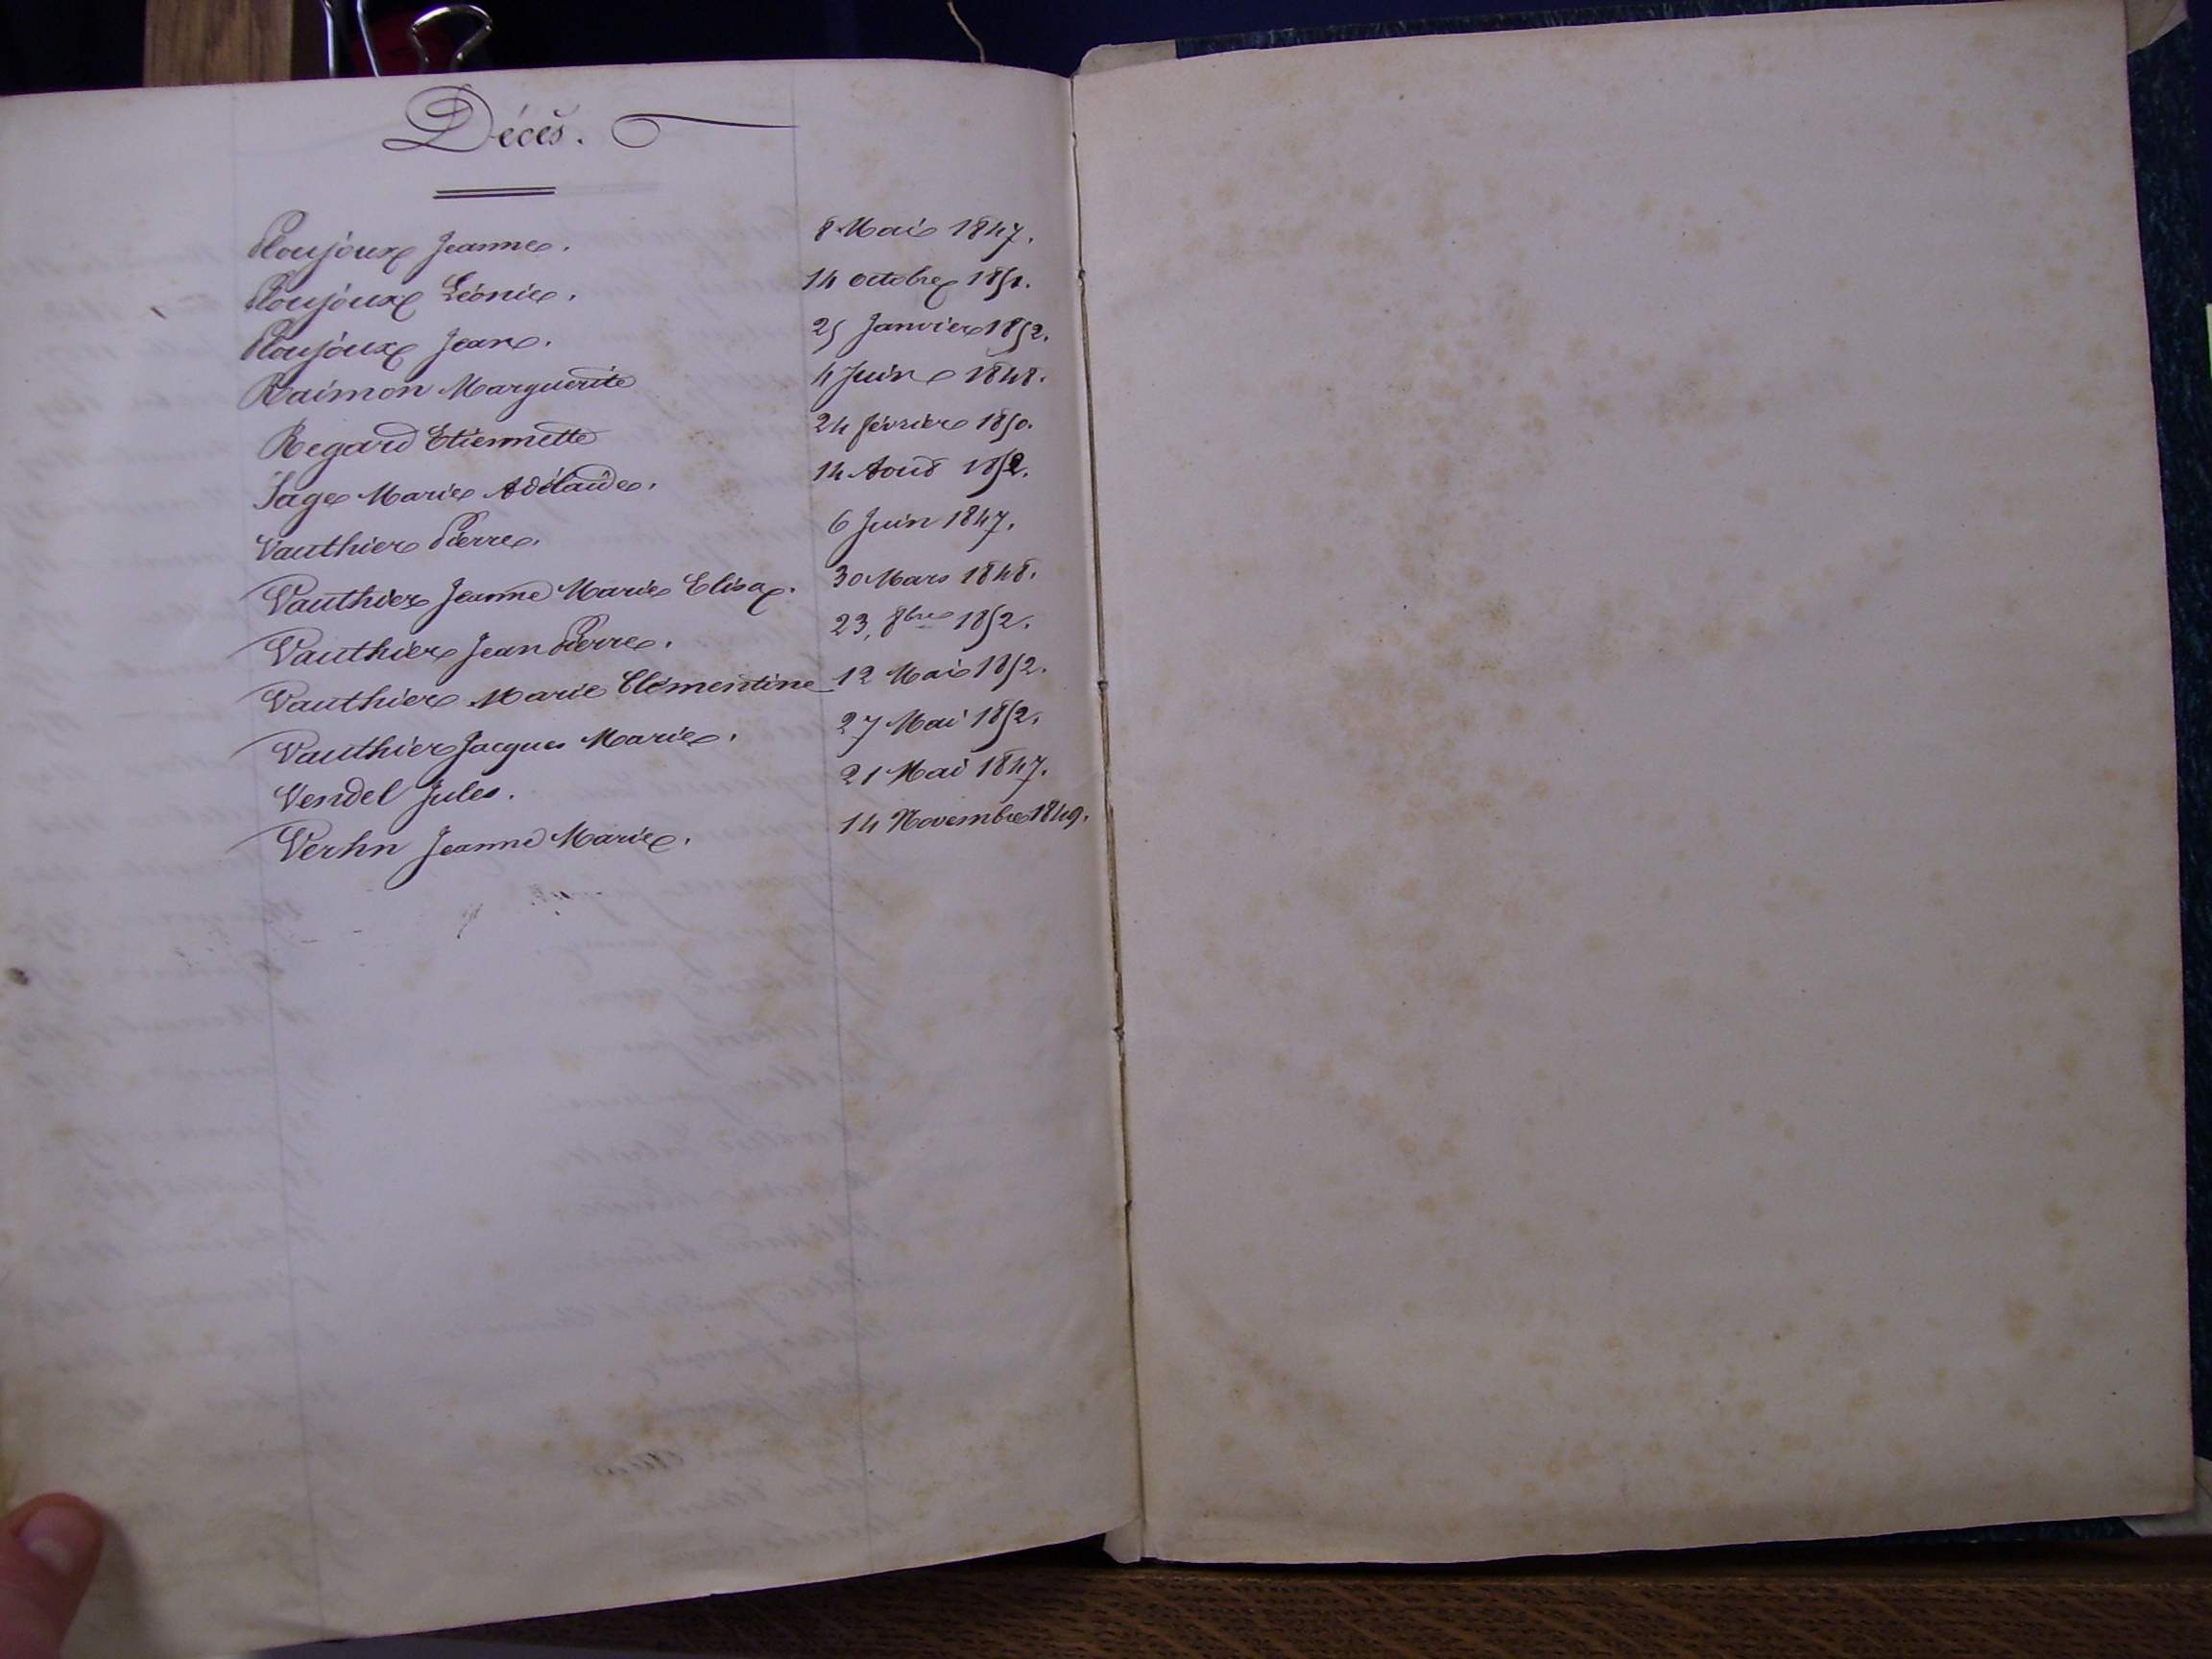 Décès.
Poujoux Jeanne. 8 Mai 1847.
Poujoux Léonie. 14 octobre 1851.
Poujoux Jean. 25 Janvier 1852.
Raimon Marguerite 4 Juin 1848.
Regard Etiennette 24 février 1850.
Sage Marie Adélaïde. 14 Aout 1852.
Vauthier Pierre. 6 Juin 1847.
Vauthier Jeanne Marie Elisa. 30 Mars 1848.
Vauthier Jean Pierre. 23, 8bre 1852.
Vauthier Marie Clémentine 12 Mai 1852.
Vauthier Jacques Marie. 27 Mai 1852.
Vendel Jules. 21 Mai 1847.
Verhn Jeanne Marie. 14 Novembre 1849.